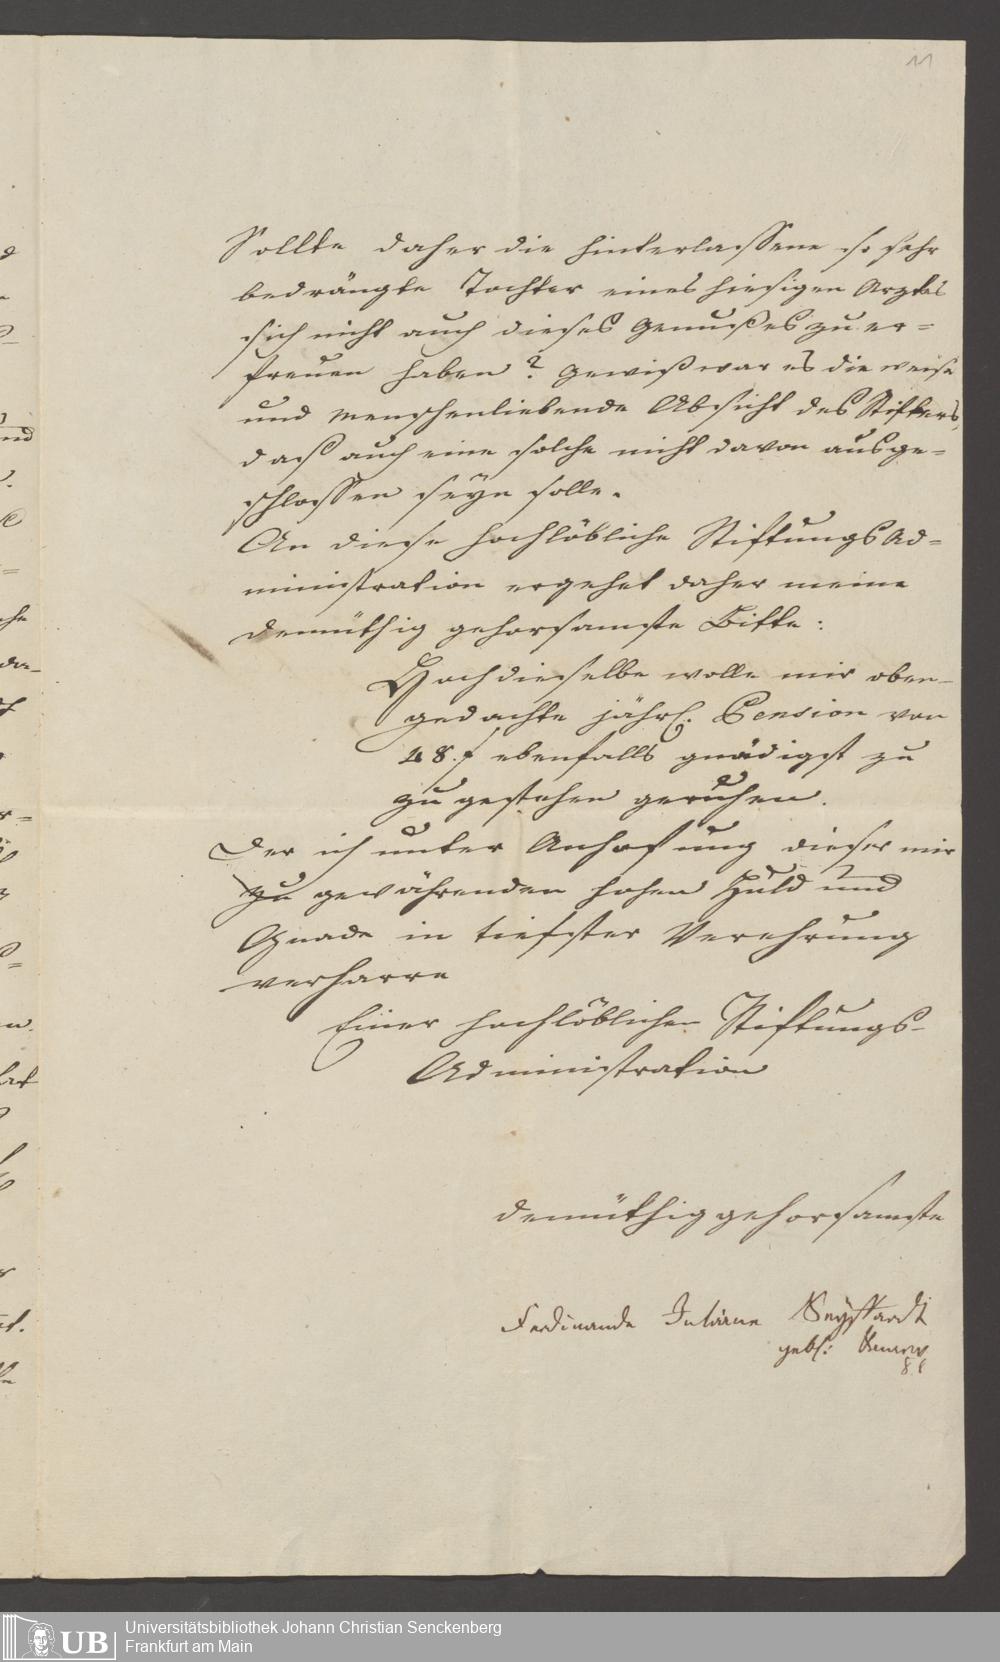 11
Sollte daher die hinterlassene so sehr
bedrängte Tochter eines hiesigen Arztes
sich nicht auch dieses Genußes zu er=
freuen haben? Gewiß war es die weise
und menschenliebende Absicht des Stifters,
daß auch eine solche nicht davon ausge=
schlossen seyn solle.
An diese hochlöbliche Stiftungs Ad=
ministration ergehet daher meine
demüthig gehorsamste Bitte:
Hochdieselbe wolle mir oben-
gedachte jährl. Pension von
48. f ebenfalls gnädigst zu
zu gestehen geruhen.
Der ich unter Anhofung dieser mir
zu gewährenden hohen Huld und
Gnade in tiefster Verehrung
verharre
Einer hochlöblichen Stiftungs-
Administration
demüthig gehorsamste
Ferdinande Juliane Seyffardt
geb:
Universitätsbibliothek Johann Christian Senckenberg
Frankfurt am Main
UB